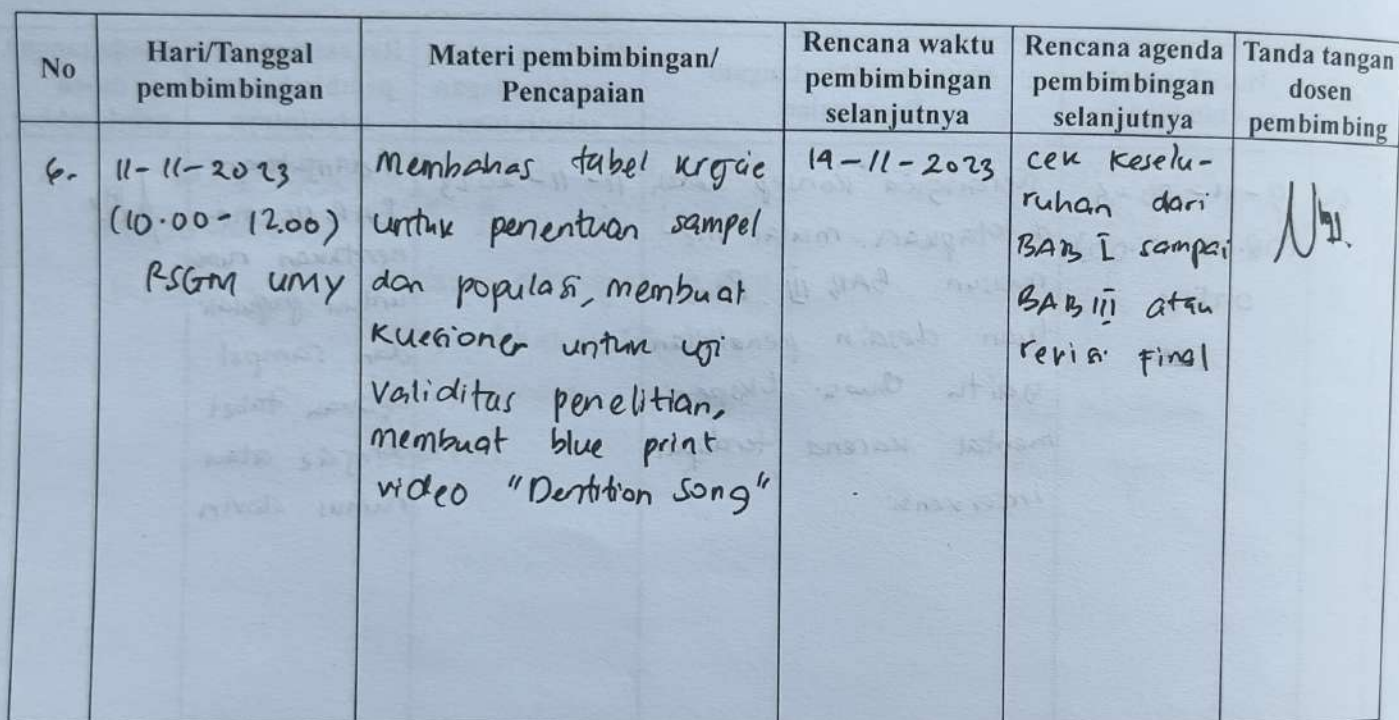 No
Hari/Tanggal
pembimbingan
Materi pembimbingan/
Pencapaian
Rencana waktu
pembimbingan
selanjutnya
Rencana agenda
pembimbingan
selanjutnya
Tanda tangan
dosen
pembimbing
6.
11-11-2023
(10.00-12.00)
RSGM UMY
Membahas tabel krejcie
untuk penentuan sampel
dan populasi, membuat
kuesioner untuk uji
validitas penelitian,
membuat blue print
video "Dentition Song"
19-11-2023
cek keselu-
ruhan dari
BAB I sampai
BAB III atau
revisi final